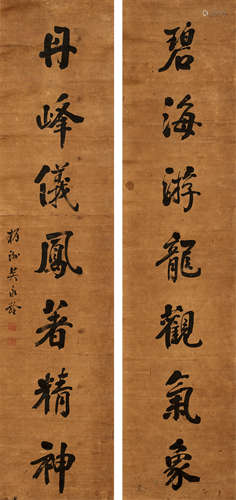 碧海游龍觀氣象
丹峰儀鳳著精神